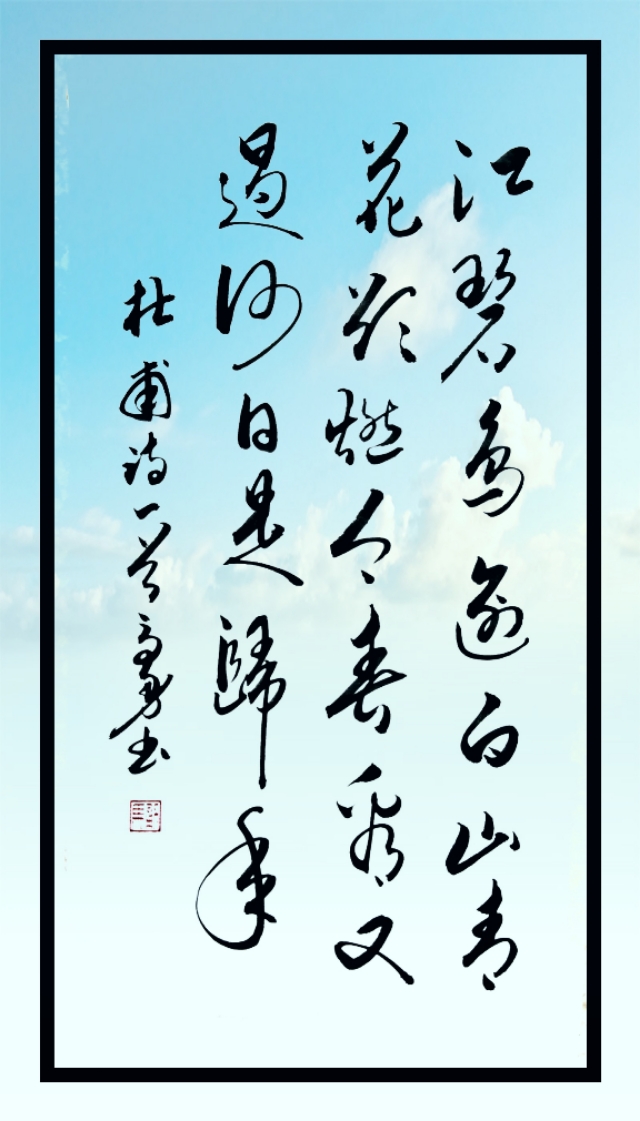 江碧鸟逾白山青
花欲燃今春看又
過何日是歸年
杜甫诗一首
书